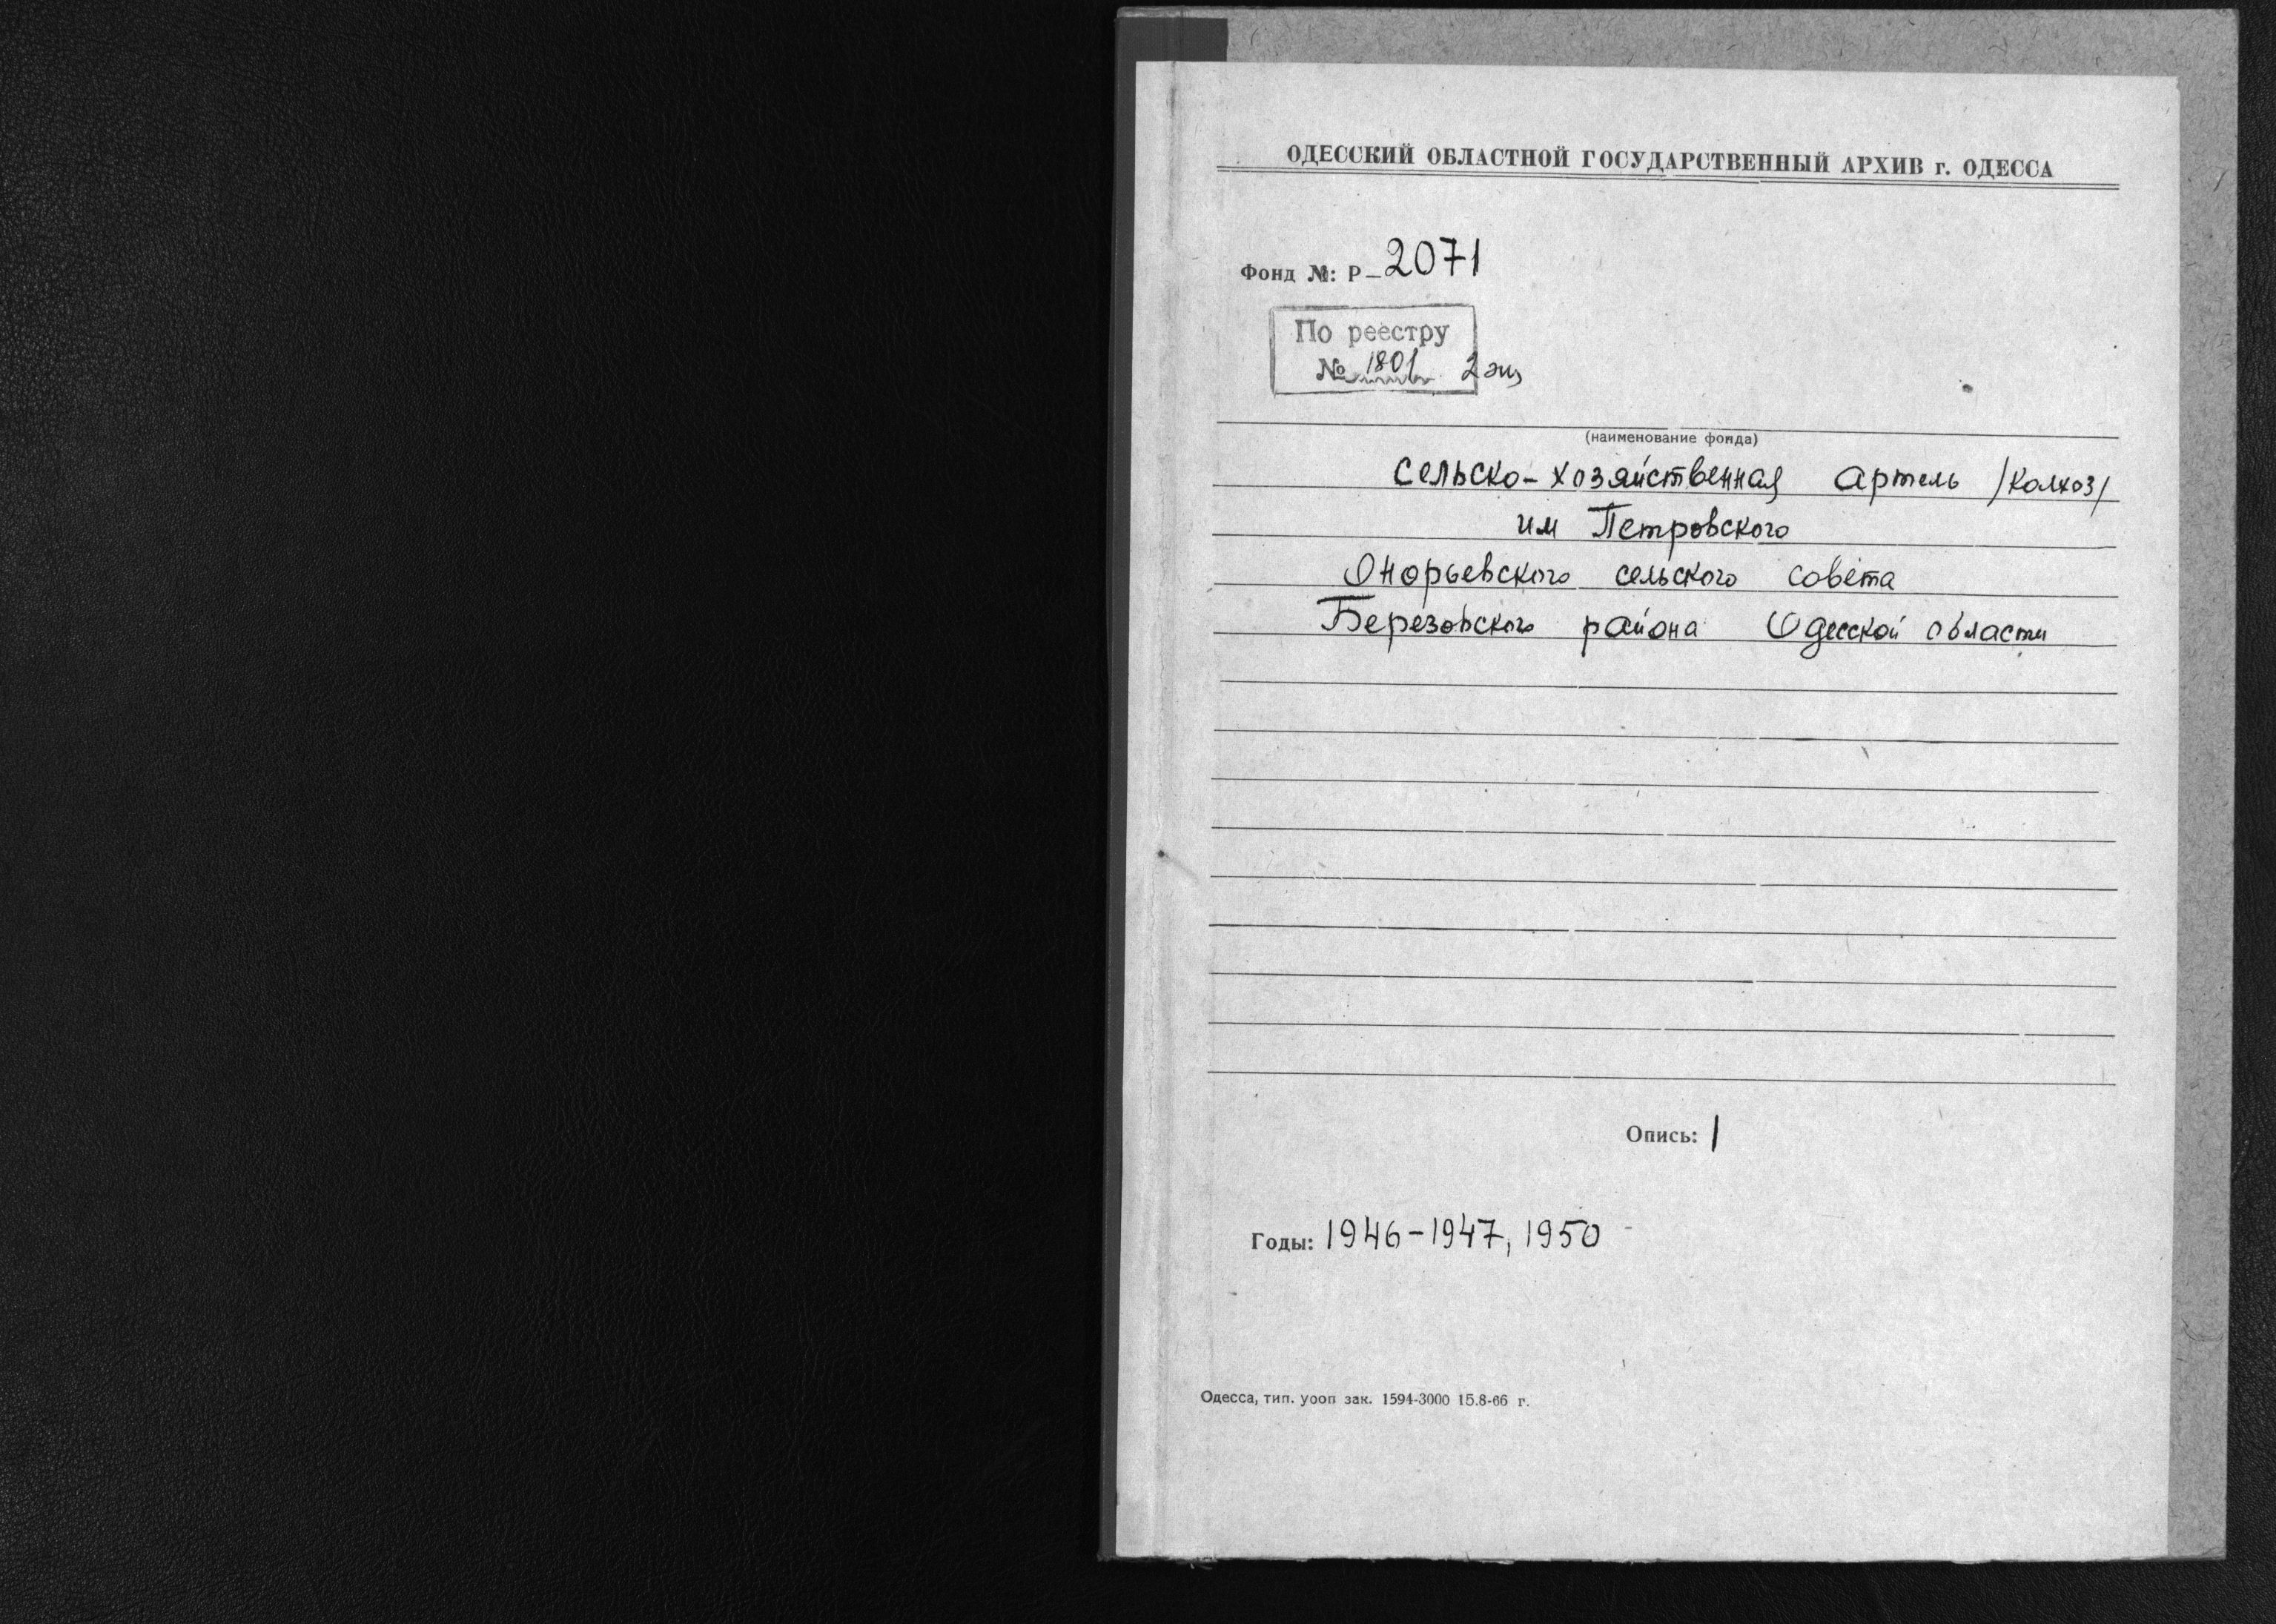 ОДЕССКИЙ ОБЛАСТНОЙ ГОСУДАРСТВЕННЫЙ АРХИВ г. ОДЕССА
Фонд №: Р-2071
По реестру
№ 1801 2 экз
(наименование фонда)
Сельско-хозяйственная Артель /Колхоз/
им Петровского
Онорьевского сельского совета
Березовского района Одесской области
Опись: 1
Годы: 1946-1947, 1950
Одесса, тип. уооп зак. 1594-3000 15.8-66 г.